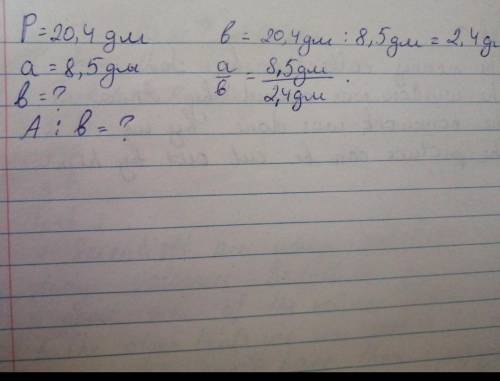 P = 20,4 дм
a = 8,5 дм
в = ?
A : в = ?
в = 20,4 дм : 8,5 дм = 2,4 д
a/в = 8,5 дм/2,4 дм .